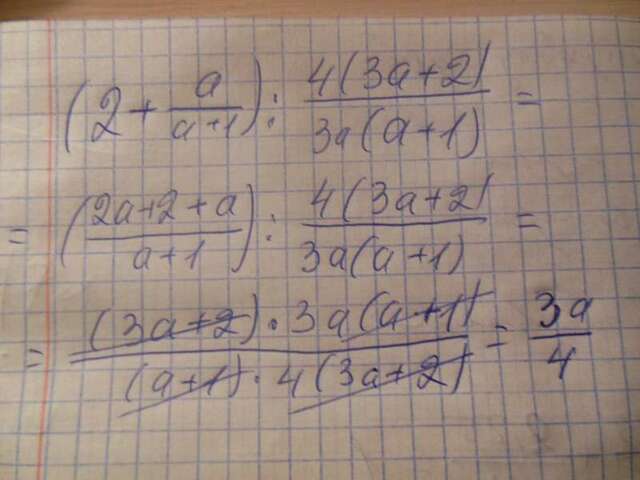 (2 + a/(a+1)) : 4(3a+2)/3a(a+1) =
= ((2a+2+a)/(a+1)) : 4(3a+2)/3a(a+1) =
= (3a+2)·3a(a+1)/(a+1)·4(3a+2) = 3a/4